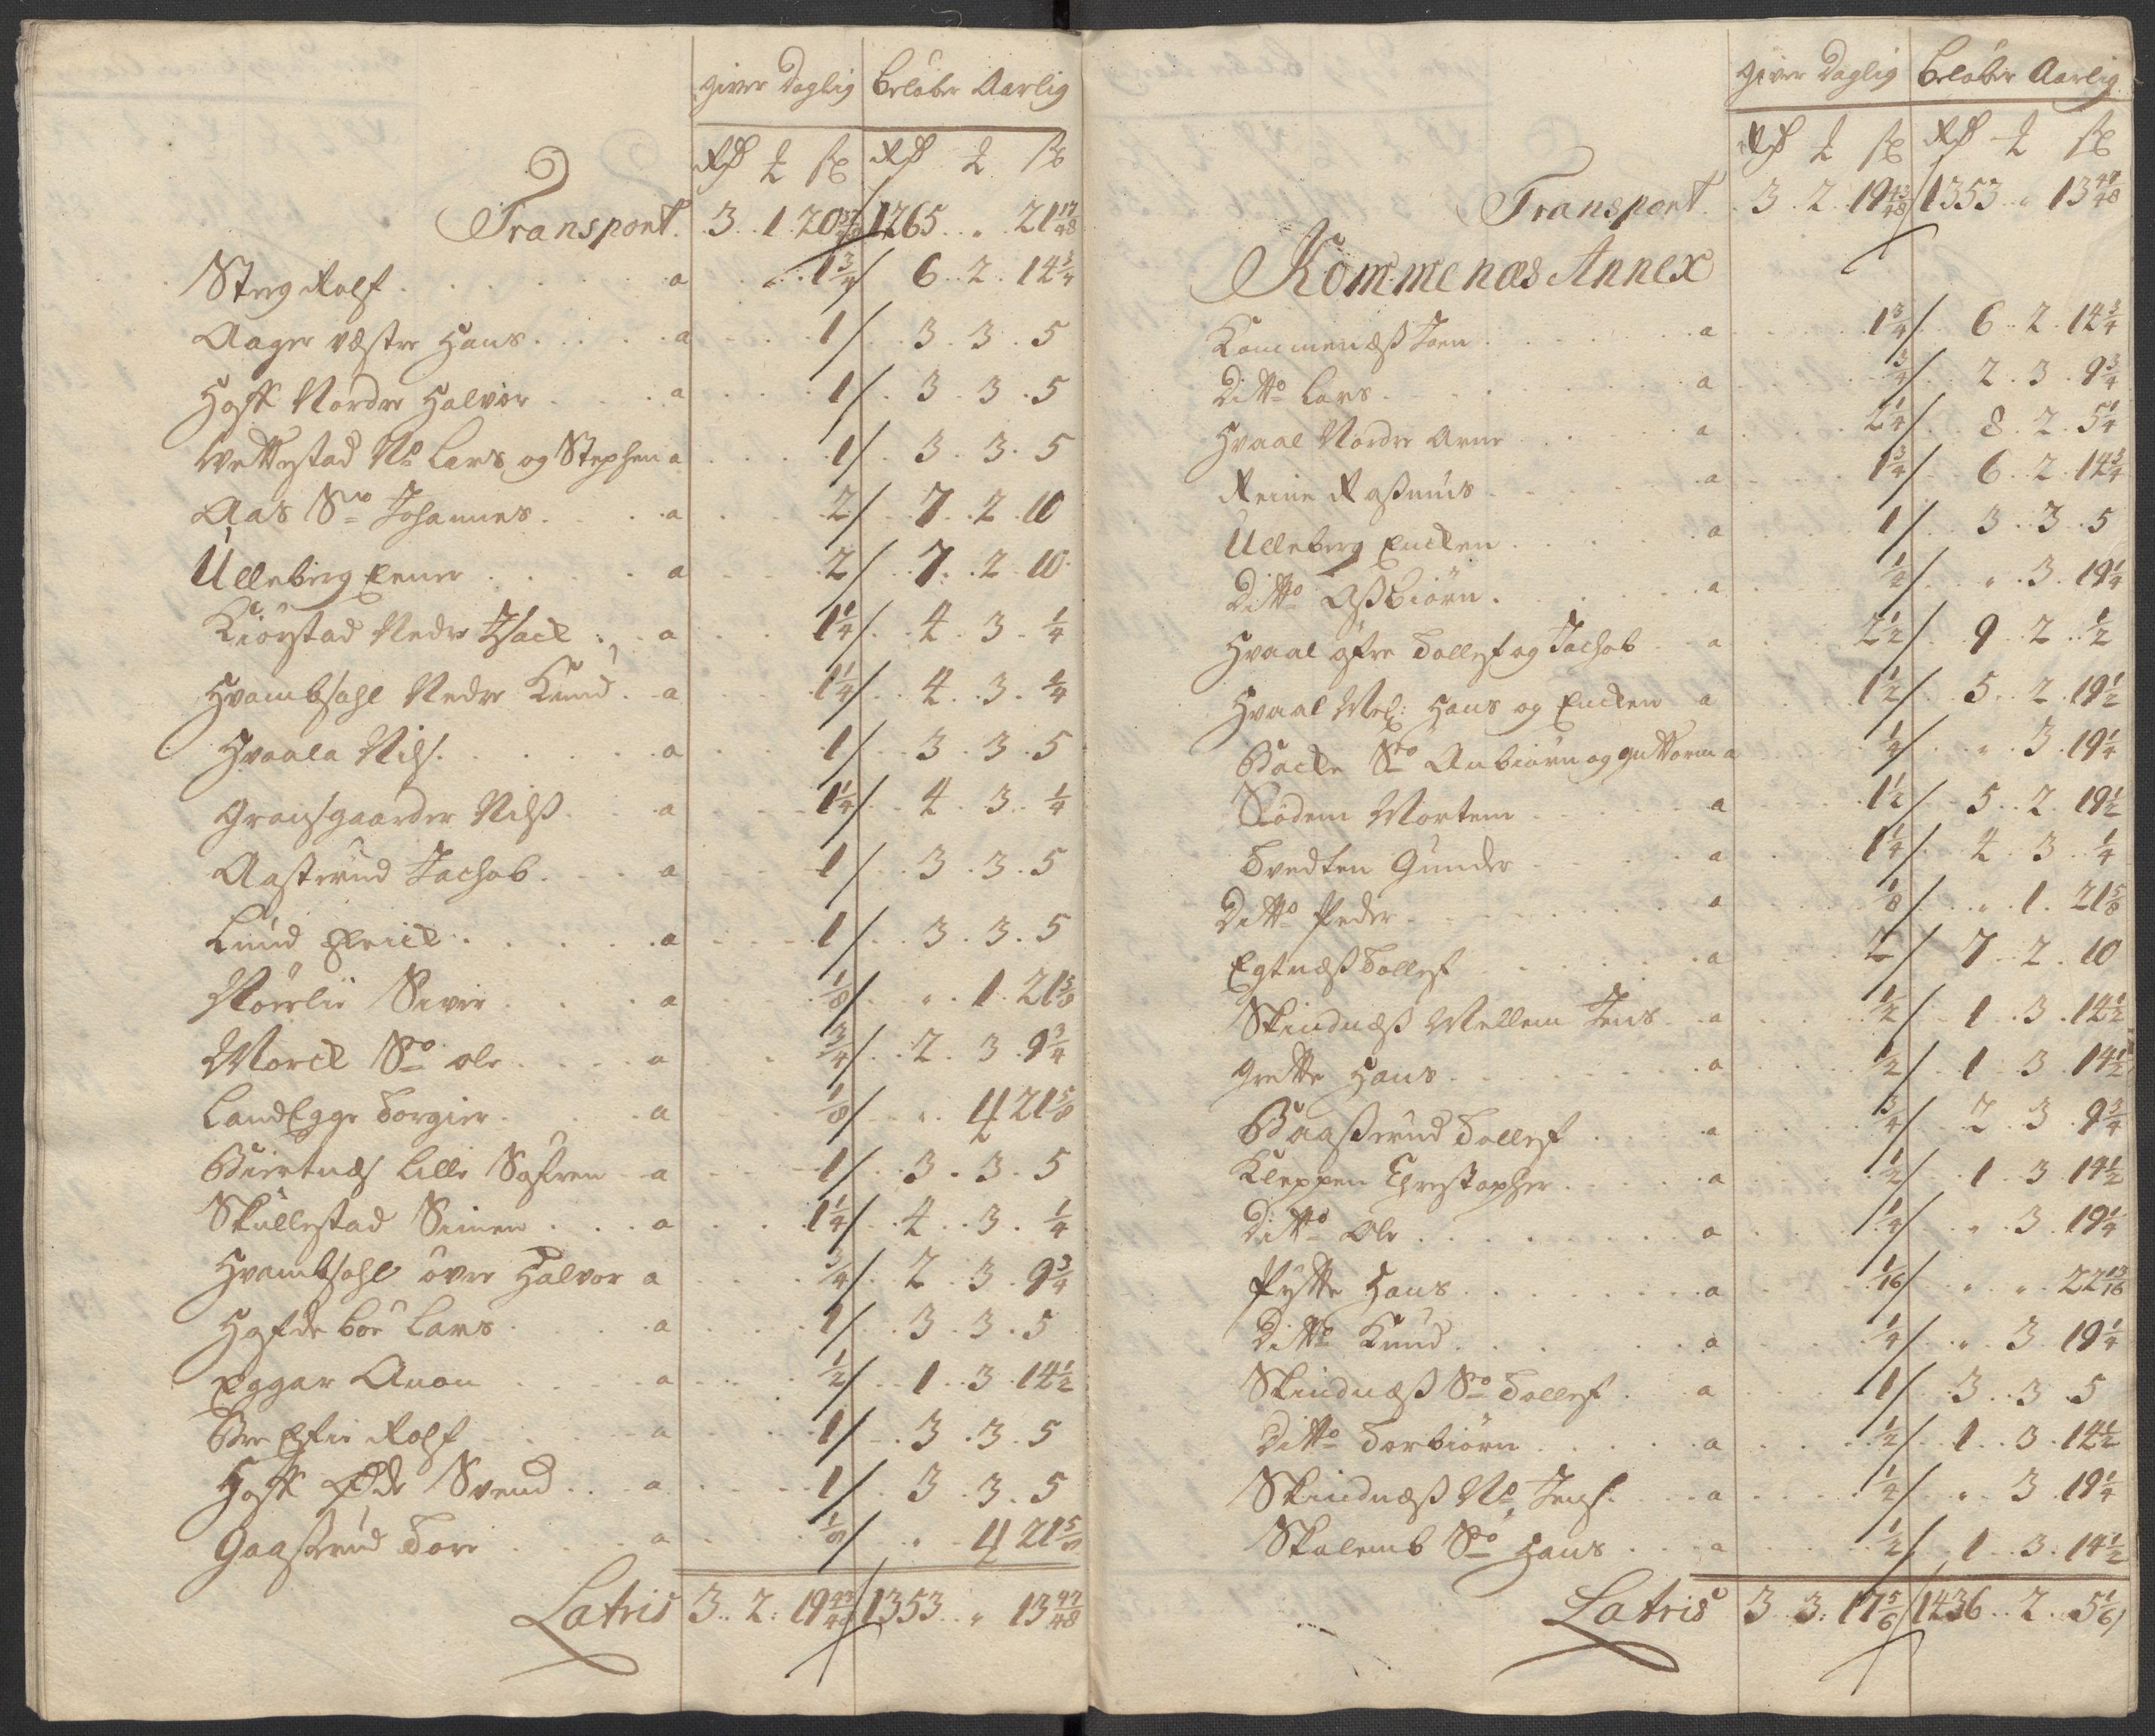 giver Daglig Beløber Aarlig
Rd ß Rd ß
Transport. 3. 1. 20 37/48 1265 " 21 17/48
Steeg Rolf a 1 3/4 6. 2. 14 3/4
Aager Væstre Hans a 1 3. 3. 5
Hoff Nordre Halvor a 1 3. 3. 5
Wettestad No Lars og Stephen a 1 3. 3. 5
Aas Sro Johannes a 2 7. 2. 10
Ulleberg a 2 7. 2. 10
Kiörstad Nedre Isack a 1 1/4 4. 3. 1/4
Hvambsahl Nedre Knud a 1 1/4 4. 3. 1/4
Hvaala Nils a 1 3. 3. 5
Nilß a 1 1/4 4. 3. 1/4
Aasterud Jachob a 1 3. 3. 5
Lund Erick a 1 3. 3. 5
Moerlie Siver a 1/8 " 1. 21 5/8
Morck So ole a 3/4 2. 3. 9 3/4
LandEgge Torgier a 1/8 " 4 21 5/8
Biertnæs Lille Søfren a 1 3. 3. 5
Skullestad Simen a 1 1/4 4. 3. 1/4
Hvambsahl övre Halvor a 3/4 2. 3. 9 3/4
Hofde böe Lars a 1 3. 3. 5
Eggar Anon a 1/2 1. 3. 14 1/2
Rolf a 1 3. 3. 5
Hoff Svend a 1 3. 3. 5
Gaasserud Tore a 1/8 " 4 21 5/8
Latris 3. 2. 19 43/48 1353 " 13 47/48
giver Daglig Beløber Aarlig
Rd ß Rd ß
Transport 3. 2. 19 43/48 1353 " 13 47/48
Kommenæs Annex
Kommenæß Joen a 1 3/4 6. 2. 14 3/4
Ditto Lars a 3/4 2. 3. 9 3/4
Hvaal Nordre Arne a 2 1/4 8. 2. 5 1/4
Reine Raßmus a 1 3/4 6. 2. 14 3/4
Ulleberg Encken a 1 3. 3. 5
Ditto Aßbiörn a 1/4 " 3. 19 1/4
Hvaal øfre Tollef og Jachob a 2 1/2 9. 2. 1/2
Hvaal Mel: Hans og Encken a 1 1/2 5. 2. 19 1/2
Backe Sro Anbiörn og Guttorm a 1/4 " 3. 19 1/4
Rödem Morten a 1 1/2 5. 2. 19 1/2
Tvedten Gunder a 1 1/4 4. 3. 1/4
Ditto Peder a 1/8 " 1. 21 5/8
Egtnæß Tollef a 2 7. 2. 10
Skindnæß Mellem Jens a 1/2 1. 3. 14 1/2
Grette Hans a 1/2 1. 3. 14 1/2
Baaßerud Tollef a 3/4 2. 3. 9 3/4
Kleppen Christopher a 1/2 1. 3. 14 1/2
Ditto Ole a 1/4 " 3. 19 1/4
Pytte Hans a 1/16 " " 22 13/16
Ditto Knud a 1/4 " 3. 19 1/4
Skindnæß So Tollef a 1 3. 3. 5
Ditto Torbiörn a 1/2 1. 3. 14 1/2
Skindnæß No Jens a 1/4 " 3. 19 1/4
Skalemb So Hans a 1/2 1. 3. 14 1/2
Latris 3. 3: 17 5/6 1436. 2. 5 1/6